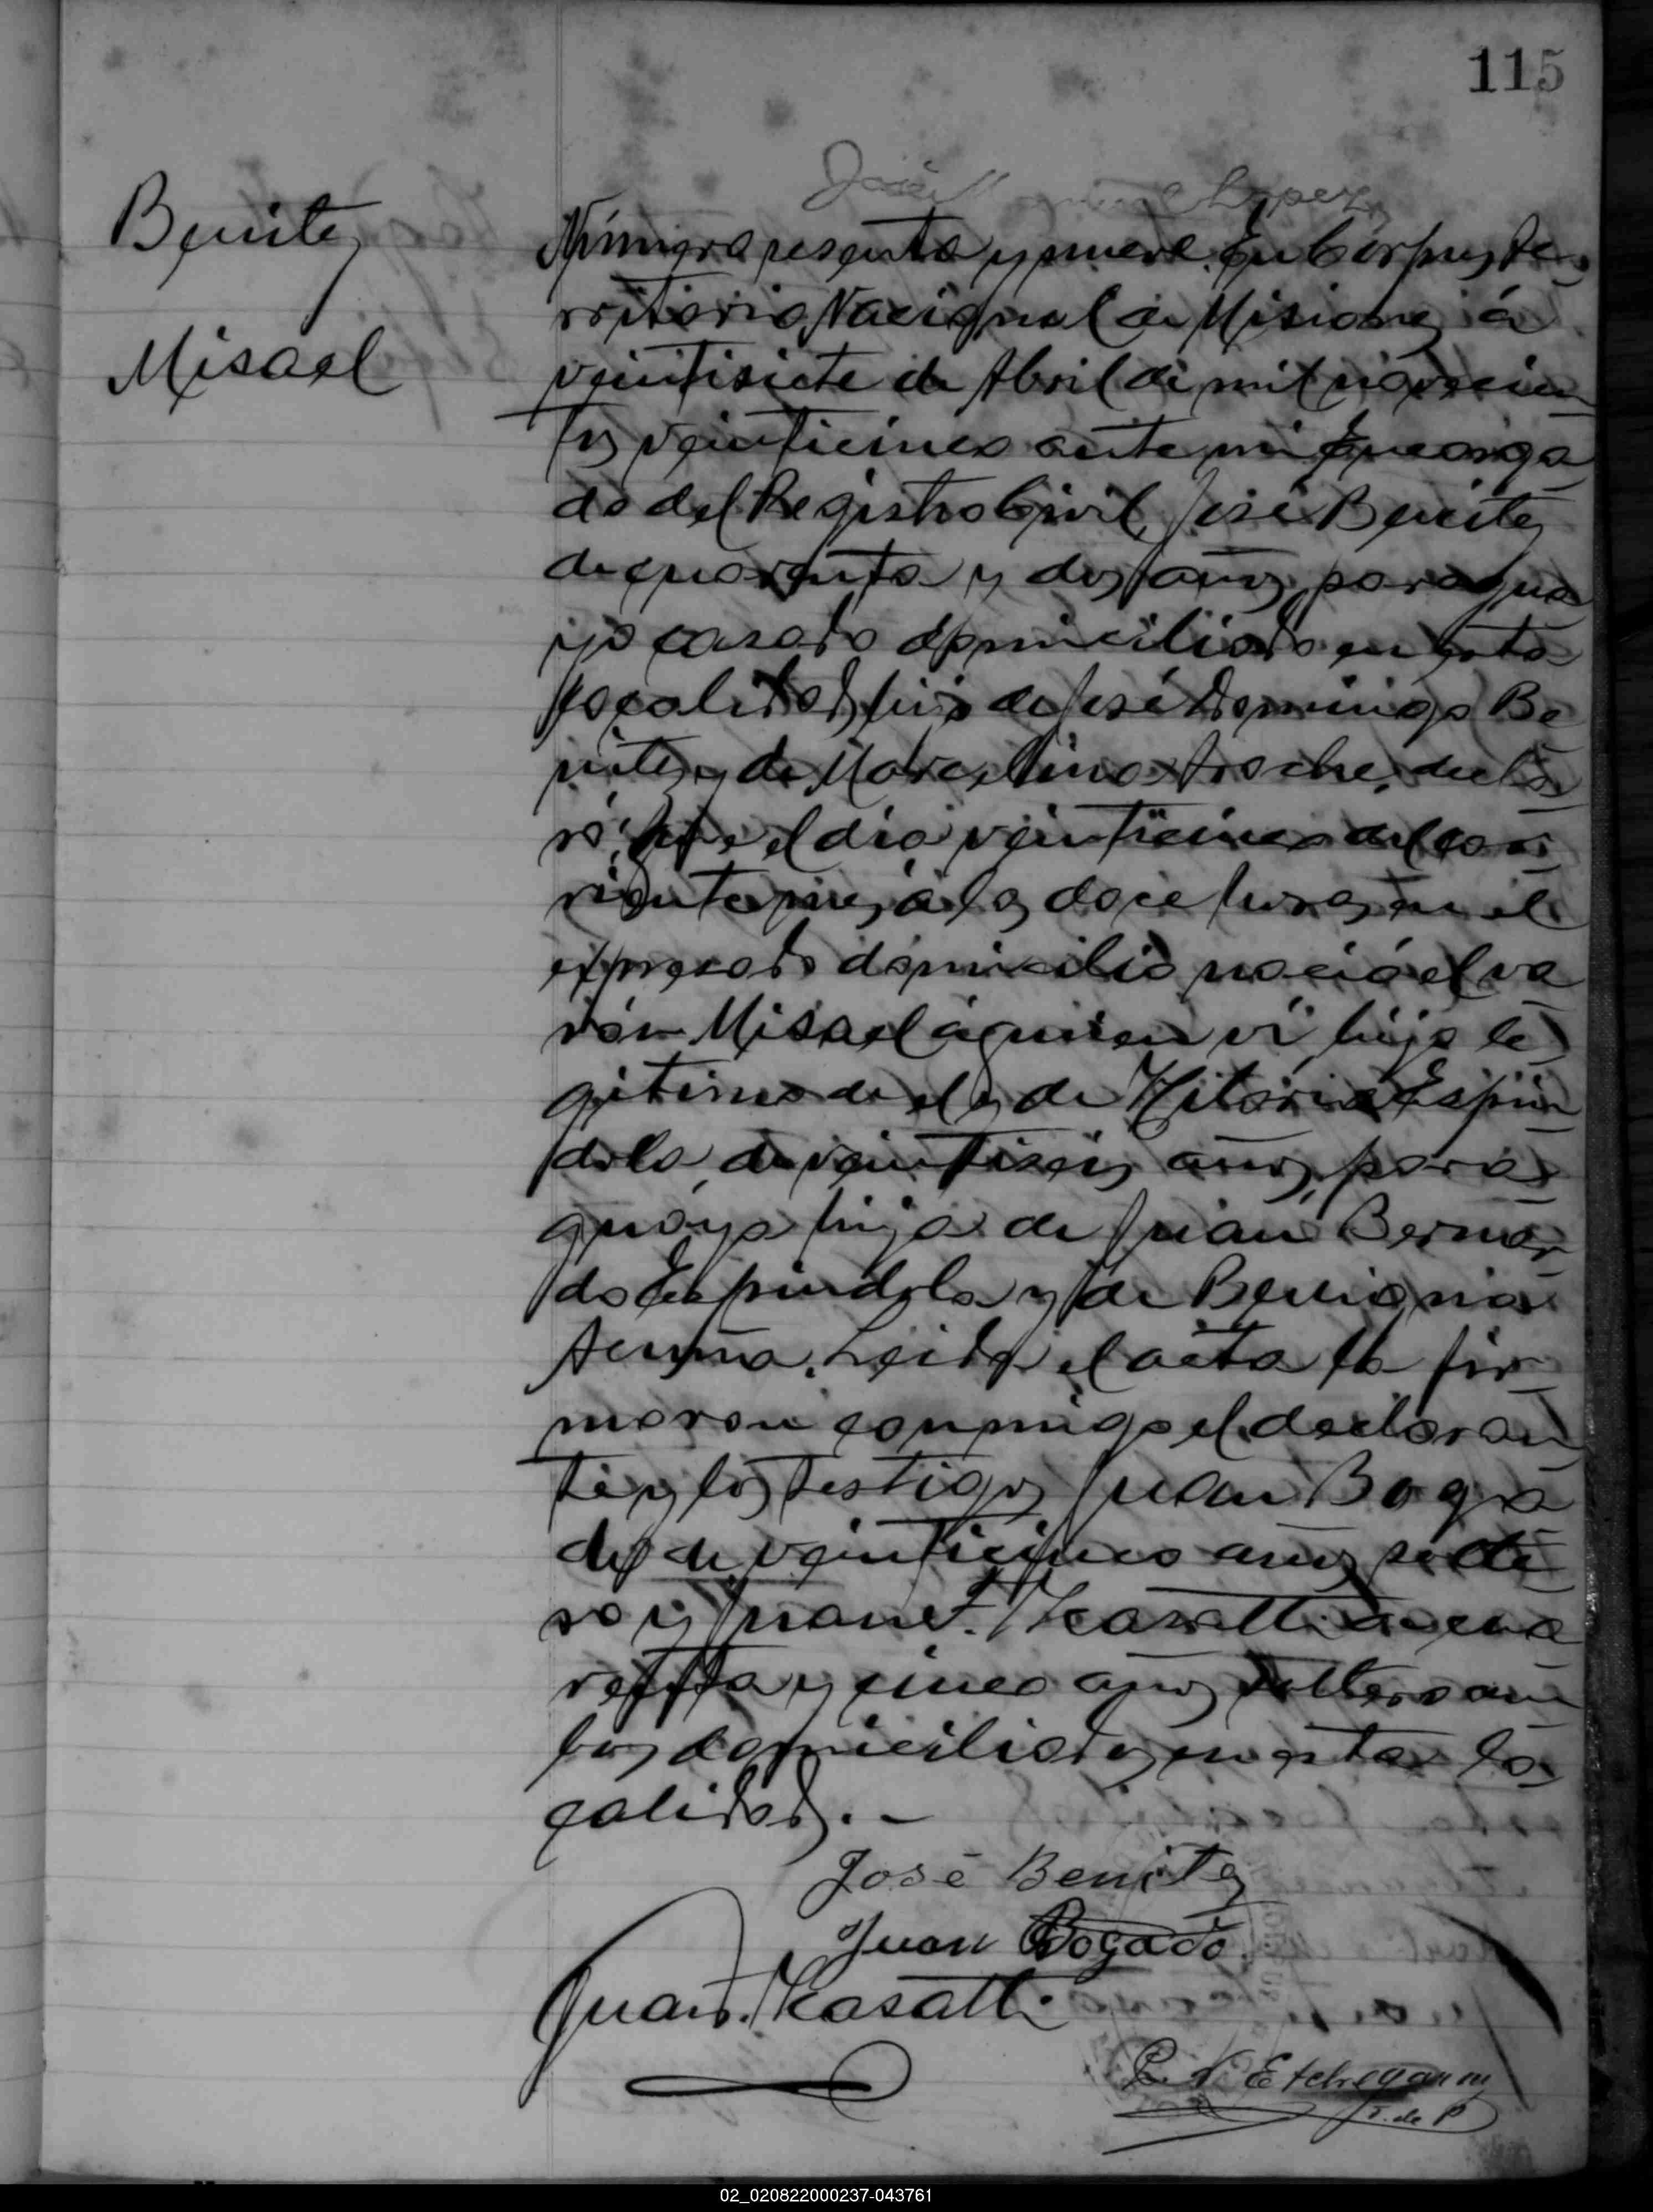 115
Benitez
Misael
José Lopez
Número sesenta y nueve. En Corpus, Te-
rritorio Nacional de Misiones, á
veintisiete de Abril de mil novecien-
tos veinticinco ante mi Encarga
do del Registro Civil, José Benitez
de cuarenta y dos años, paragua
yo casado domiciliado en esta
localidad, hijo de José Domingo Be
nitez y de Marcelina Aroche, decla-
ró: Que el día veinticinco del cor
riente mes, á las doce horas en el
expresado domicilio nació el va
rón Misael á quien ví, hijo le-
gitimo de el y de Espín
dola, de veintiseis años, para-
guaya hija de Juan Bernar
do Espindola y de Benigna
Acuña. Leida el acta la fir-
maron conmigo el declaran
te y los testigos Juan Boga
do, de veinticinco años, solte
ro y Juan F. Kasatti de cua
renta y cinco años soltero am
bos domiciliados en esta lo-
calidad.-
José Benitez
Juan Bogado
Juan F. Kasatti
Etchegaray
J. de P
02_020822000237-043761